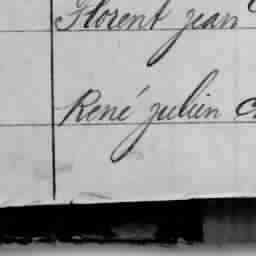 Florent jean
René julien